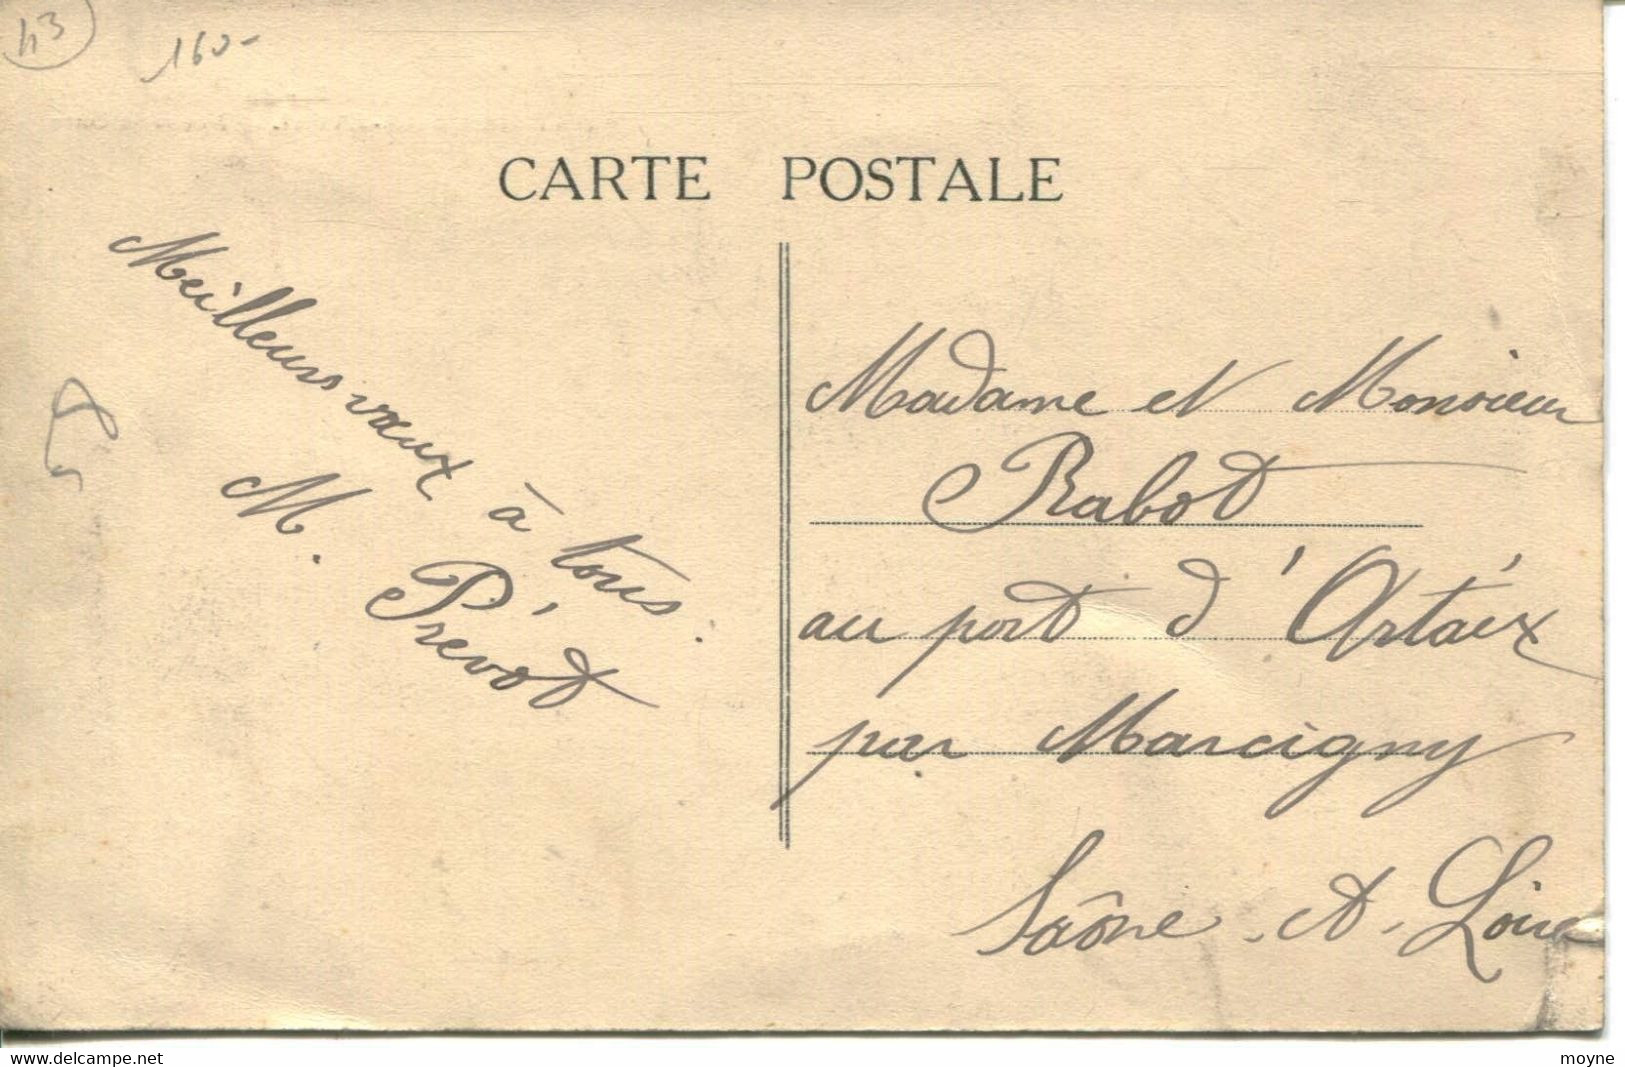 43
160-
CARTE POSTALE
Meilleurs vœux à tous.
M. Prévot
Madame et Monsieur
Rabot
au port d'Artaix
par Marcigny
Saône-et-Loire
www.delcampe.net
moyne